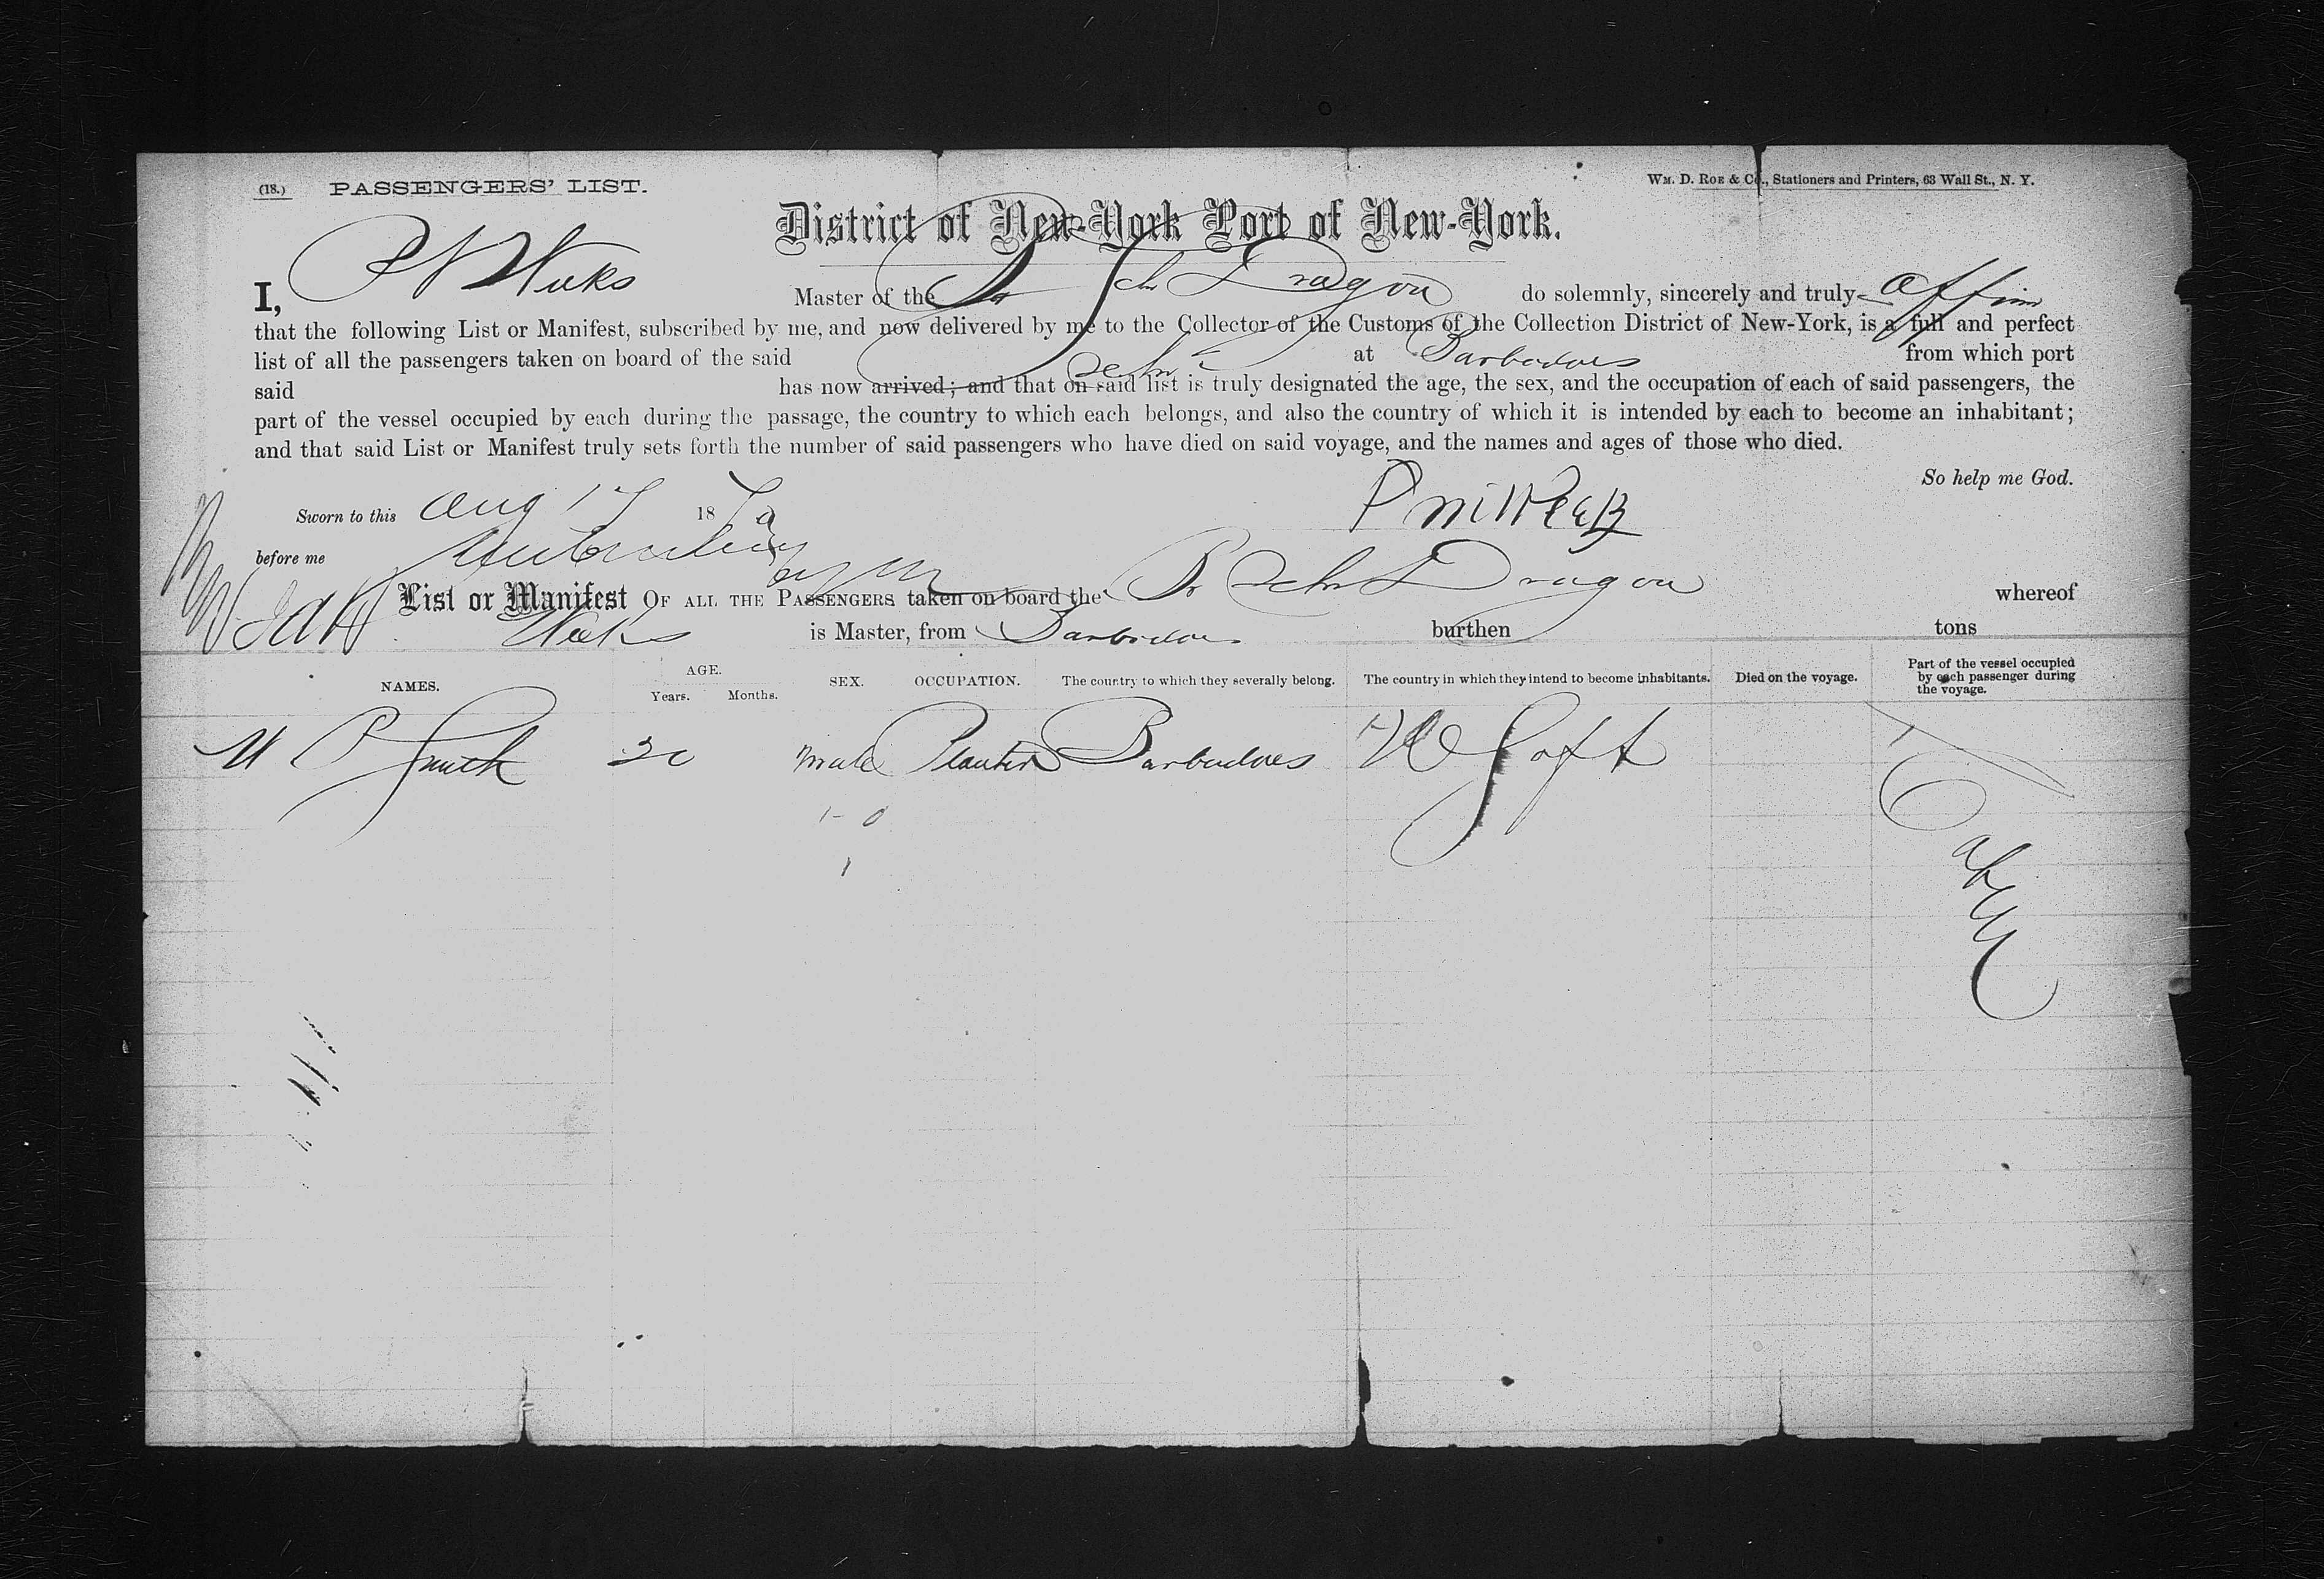 (18.) PASSENGERS' LIST. WM. D. ROE & Co., Stationers and Printers, 63 Wall St., N. Y.
District of New-York Port of New-York.
I, Weeks Master of the Br Schr Dragon do solemnly, sincerely and truly affirm
that the following List or Manifest, subscribed by me, and now delivered by me to the Collector of the Customs of the Collection District of New-York, is a full and perfect
list of all the passengers taken on board of the said Schr at Barbadoes from which port
said has now arrived; and that on said list is truly designated the age, the sex, and the occupation of each of said passengers, the
part of the vessel occupied by each during the passage, the country to which each belongs, and also the country of which it is intended by each to become an inhabitant;
and that said List or Manifest truly sets forth the number of said passengers who have died on said voyage, and the names and ages of those who died.
So help me God.
Sworn to this Aug 17 187
before me
List or Manifest OF ALL THE PASSENGERS taken on board the Br Schr Dragon whereof
Weeks is Master, from Barbadoes burthen tons
NAMES. AGE. Years. Months. SEX. OCCUPATION. The country to which they severally belong. The country in which they intend to become inhabitants. Died on the voyage. Part of the vessel occupied by each passenger during the voyage.
P Smith male Planter Barbadoes